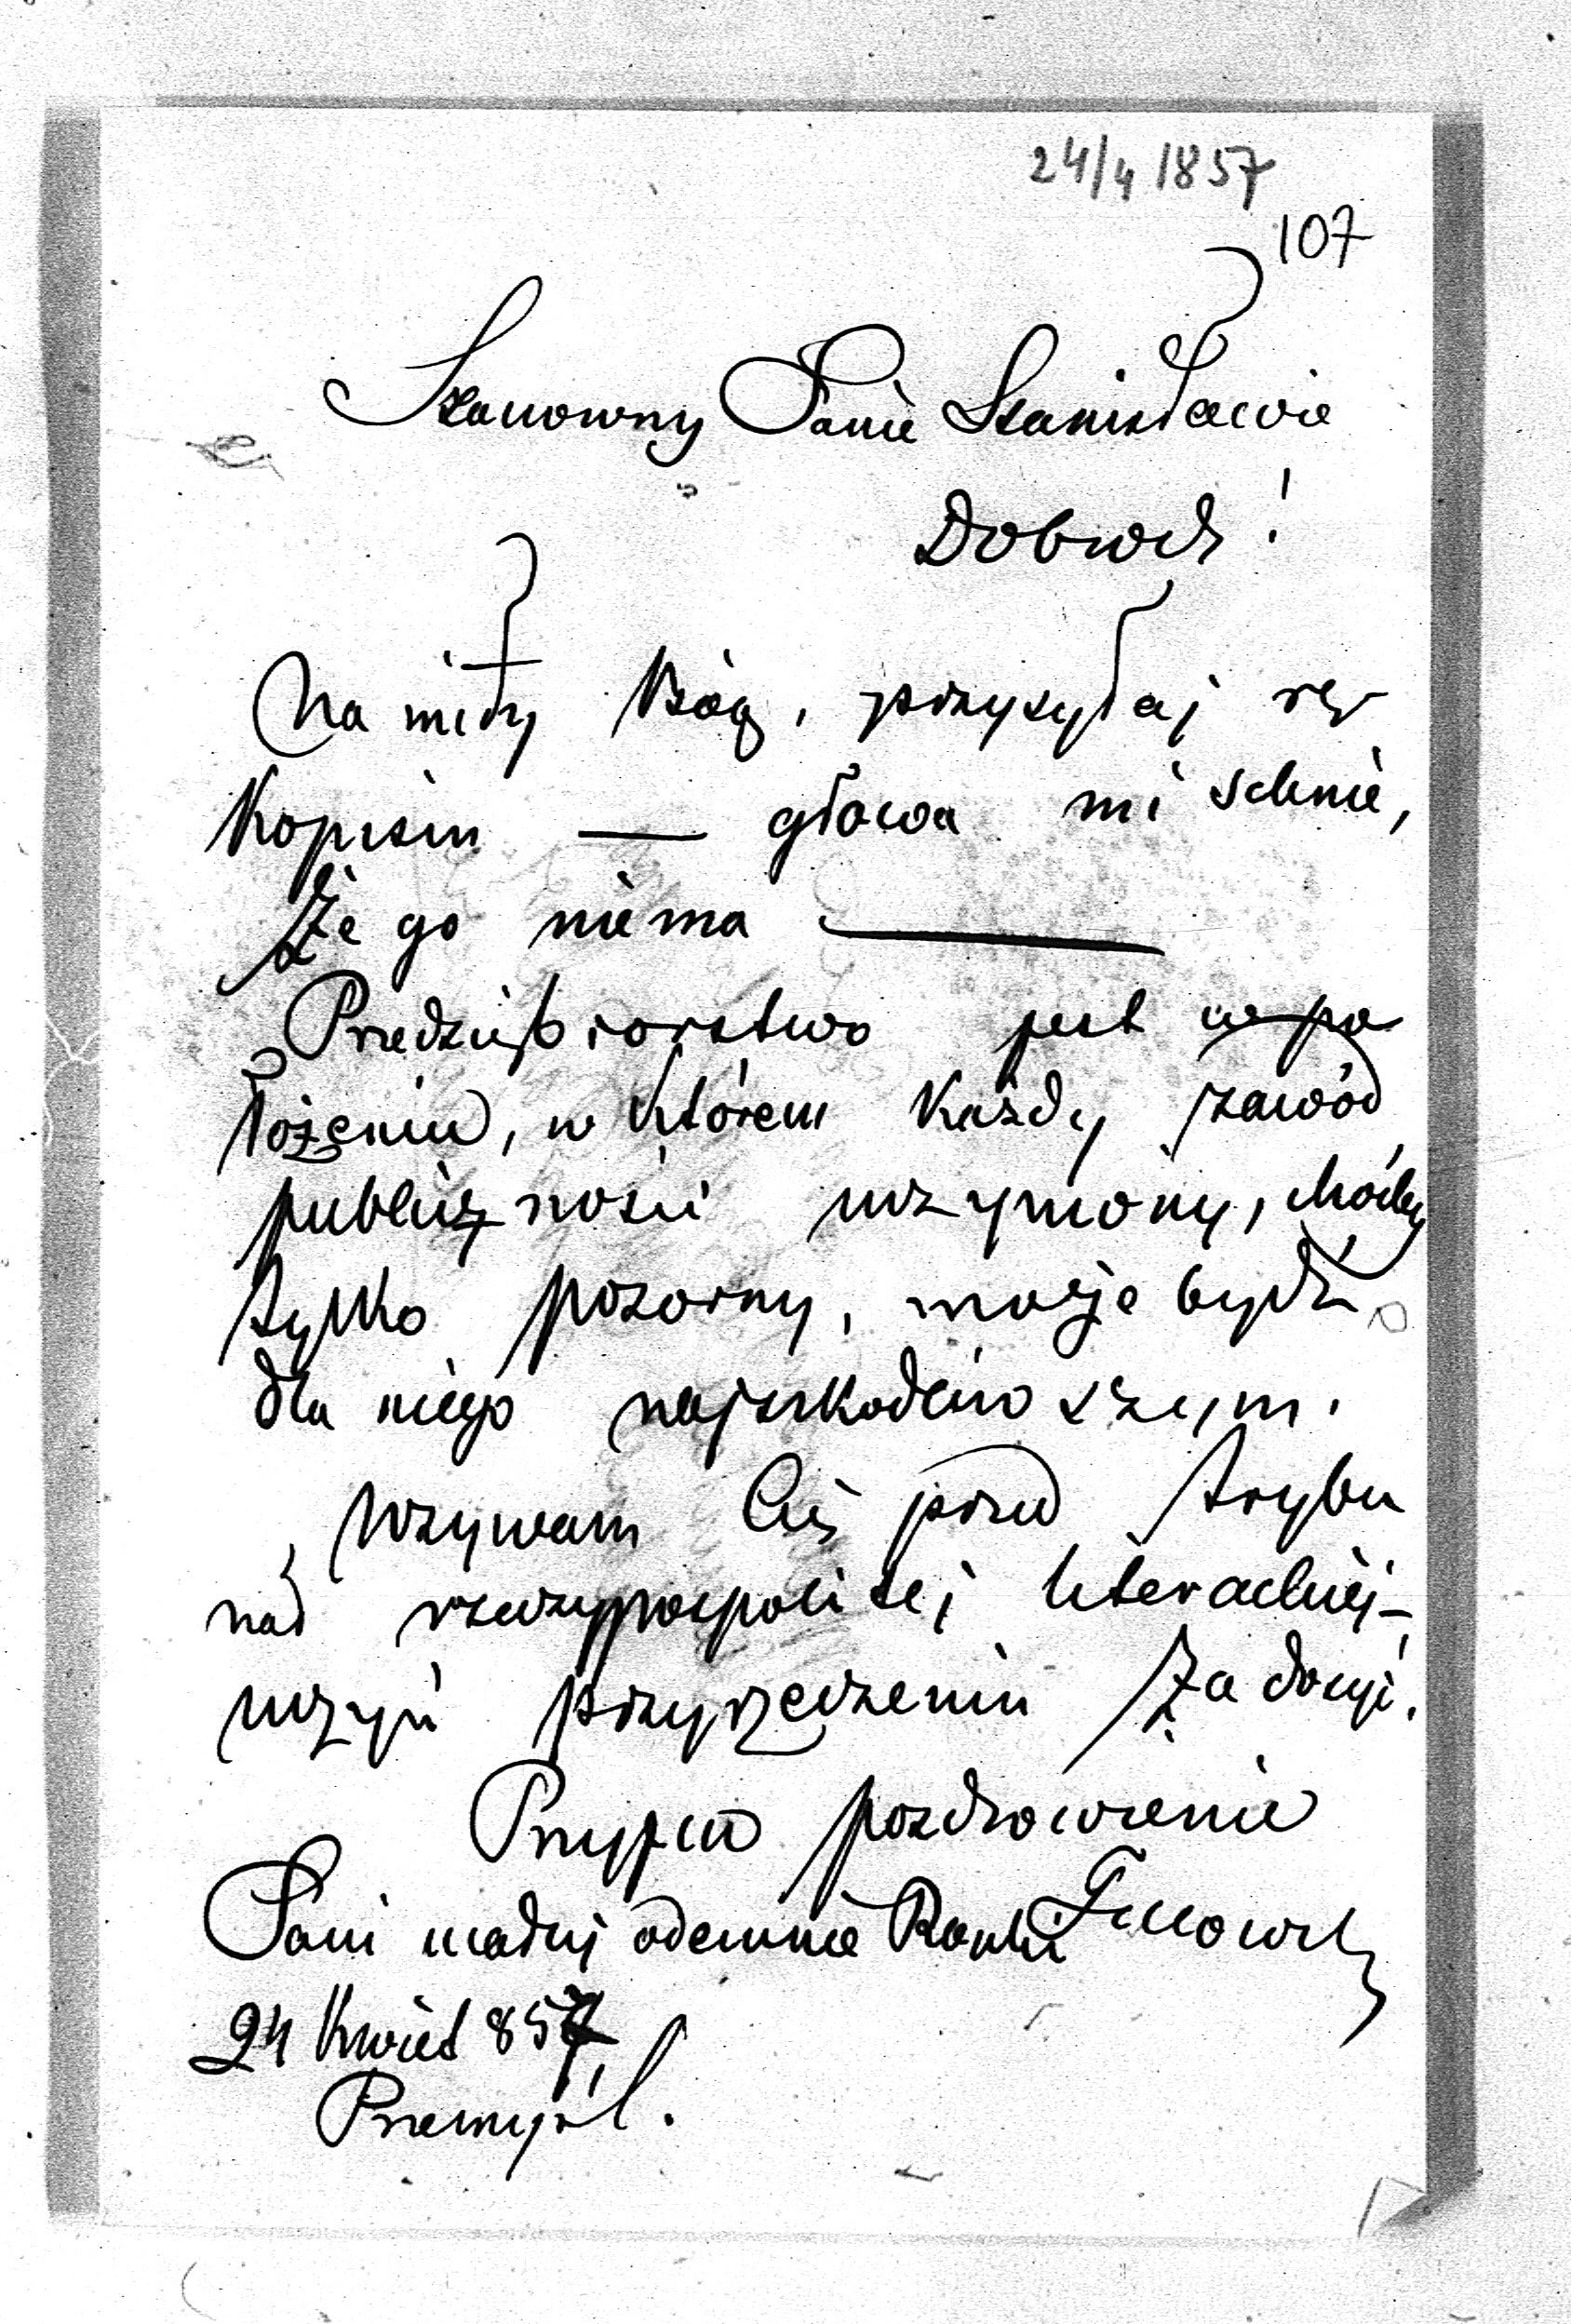 24/4 1857
107
Szanowny Panie Stanisławie
Dobrodz!
Na miły Bóg, przysyłaj rę-
kopism — głowa mi schnie,
że go niema —
Przedzięb iorstwo jest w po-
łożeniu, w którem każdy zawód
publiczności uczyniony, choćby
tylko pozorny, może bydź
dla niego najszkodliwszym.
Wzywam Cię przed trybu
nał rzeczypospolitej literackiej —
uczyń przyrzeczeniu zadosyć.
Przyjm pozdrowienie
Pani ucałuj odemnie Rączki
24 Kwiet 857
Przemyśl.